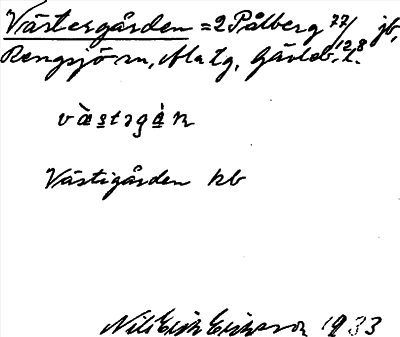 Västergården = 2 Pålberg 77/128 jb,
Rengsjö sn, Ala tg, Gävleb. l.
västəgán
Västigården kb
Nils Erik Eriksson 1933